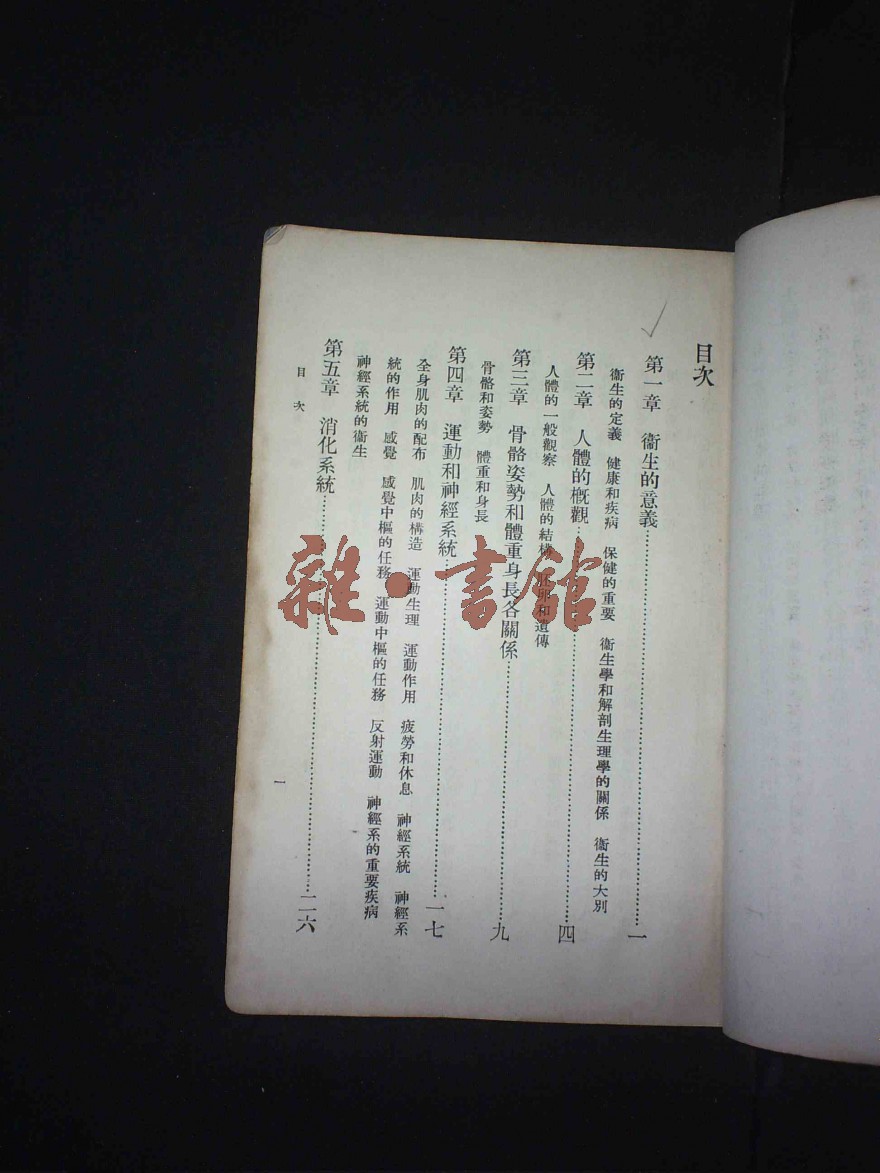 目次
第一章　衞生的意義……一
衞生的定義　健康和疾病　保健的重要　衞生學和解剖生理學的關係　衞生的大別
第二章　人體的概觀……四
人體的一般觀察　人體的結構　胚卵和遺傳
第三章　骨骼姿勢和體重身長各關係……九
骨骼和姿勢　體重和身長
第四章　運動和神經系統……一七
全身肌肉的配布　肌肉的構造　運動生理　運動作用　疲勞和休息　神經系統　神經系
統的作用　感覺　感覺中樞的任務　運動中樞的任務　反射運動　神經系的重要疾病
神經系統的衞生
第五章　消化系統……二六
目次
一
雜·書館